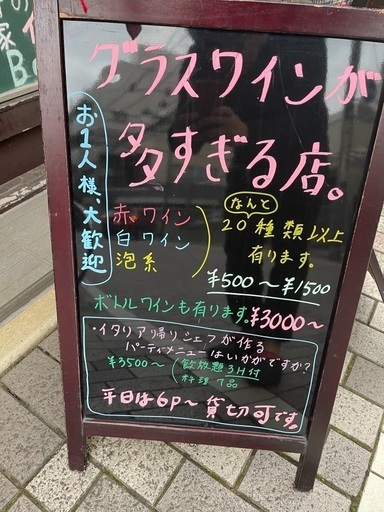 グラスワインが
多すぎる店。
お1人様、大歓迎
赤ワイン
白ワイン
泡系
なんと
20種類以上
有ります。
¥500〜¥1500
ボトルワインも有ります。¥3000〜
・イタリア帰りシェフが作る
パーティメニューはいかがですか?
¥3500〜
飲放題3H付
料理7品
平日は6P〜貸切可です。